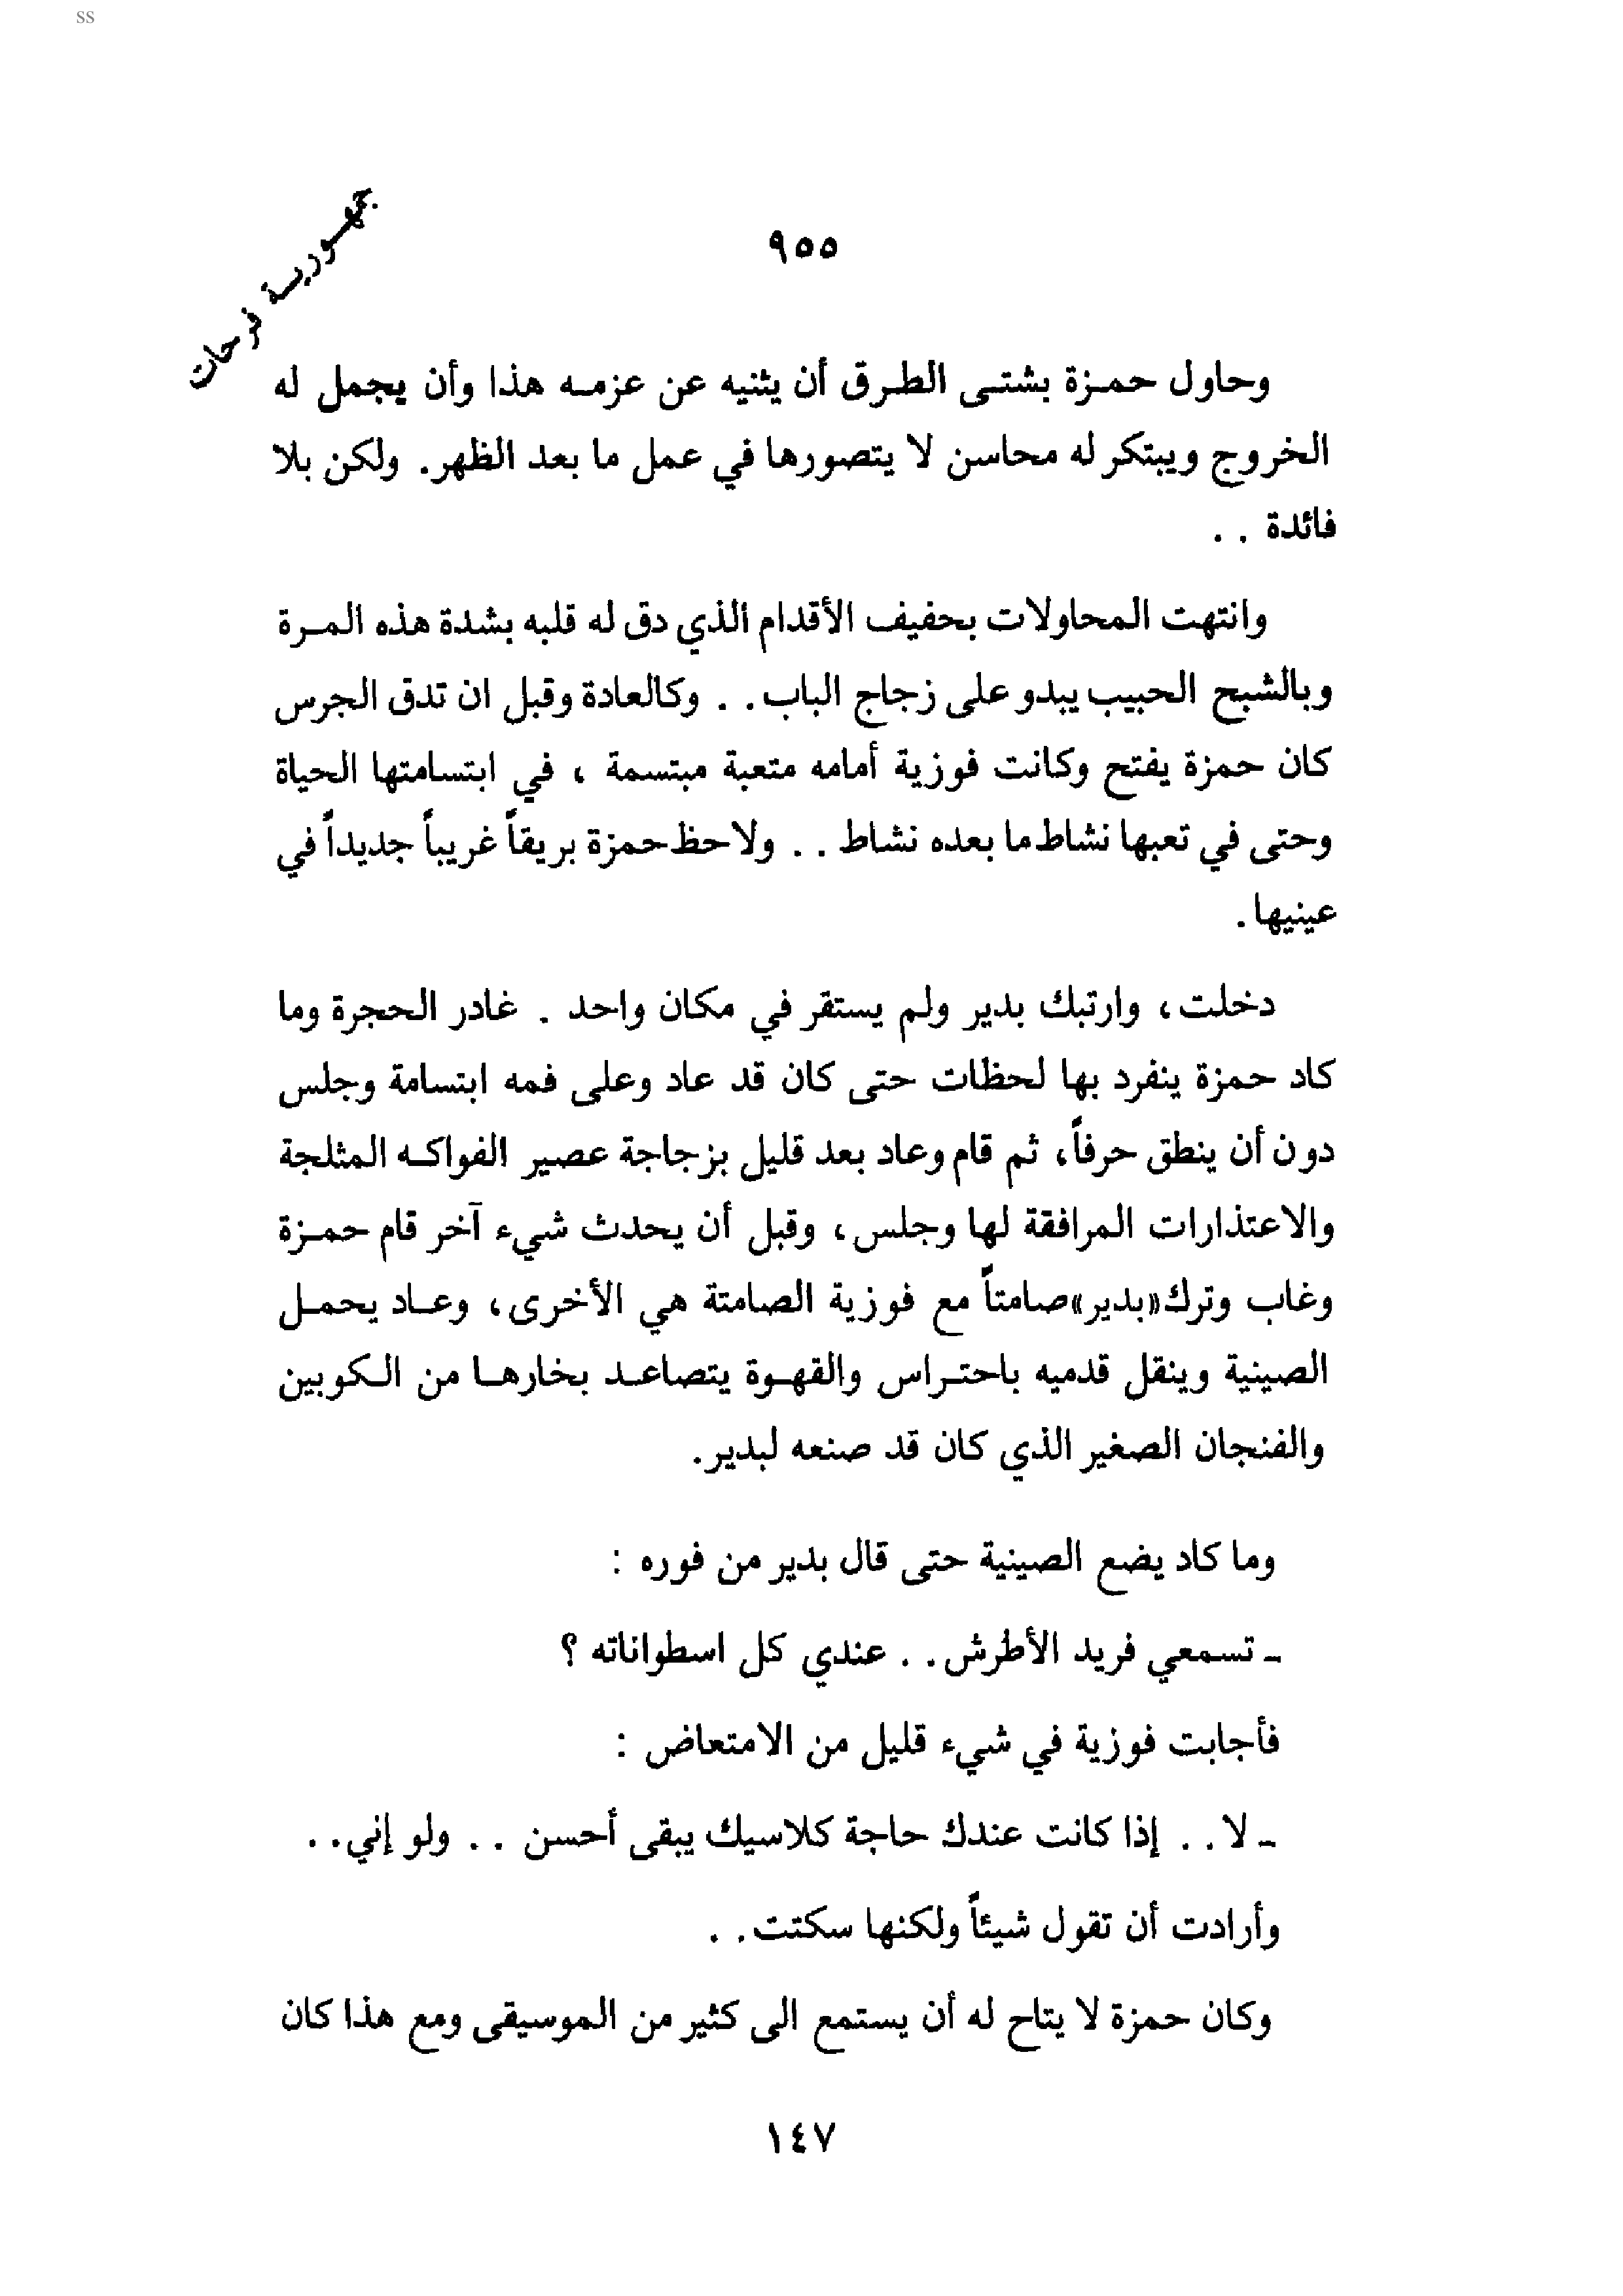 ss
جمهورية فرحات
٩٥٥
وحاول حمزة بشتى الطرق أن يثنيه عن عزمه هذا وأن يجمل له
الخروج ويبتكر له محاسن لا يتصورها في عمل ما بعد الظهر. ولكن بلا
فائدة . .
وانتهت المحاولات بحفيف الأقدام الذي دق له قلبه بشدة هذه المرة
وبالشبح الحبيب يبدو على زجاج الباب. . وكالعادة وقبل ان تدق الجرس
كان حمزة يفتح وكانت فوزية أمامه متعبة مبتسمة ، في ابتسامتها الحياة
وحتى في تعبها نشاط ما بعده نشاط . . ولاحظ حمزة بريقاً غريباً جديداً في
عينيها.
دخلت، وارتبك بدير ولم يستقر في مكان واحد . غادر الحجرة وما
كاد حمزة ينفرد بها لحظات حتى كان قد عاد وعلى فمه ابتسامة وجلس
دون أن ينطق حرفاً، ثم قام وعاد بعد قليل بزجاجة عصير الفواكه المثلجة
والاعتذارات المرافقة لها وجلس، وقبل أن يحدث شيء آخر قام حمزة
وغاب وترك«بدير»صامتاً مع فوزية الصامتة هي الأخرى، وعاد يحمل
الصينية وينقل قدميه باحتراس والقهوة يتصاعد بخارها من الكوبين
والفنجان الصغير الذي كان قد صنعه لبدير.
وما كاد يضع الصينية حتى قال بدير من فوره :
ـ تسمعي فريد الأطرش. . عندي كل اسطواناته ؟
فأجابت فوزية في شيء قليل من الامتعاض :
ـ لا. . إذا كانت عندك حاجة كلاسيك يبقى أحسن . . ولو إني. .
وأرادت أن تقول شيئاً ولكنها سكتت. .
وكان حمزة لا يتاح له أن يستمع الى كثير من الموسيقى ومع هذا كان
١٤٧